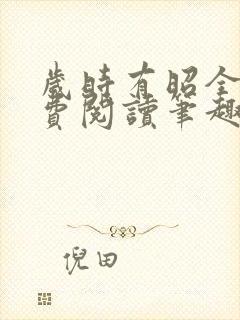 歲時有昭全
費閱讀筆趣
倪田